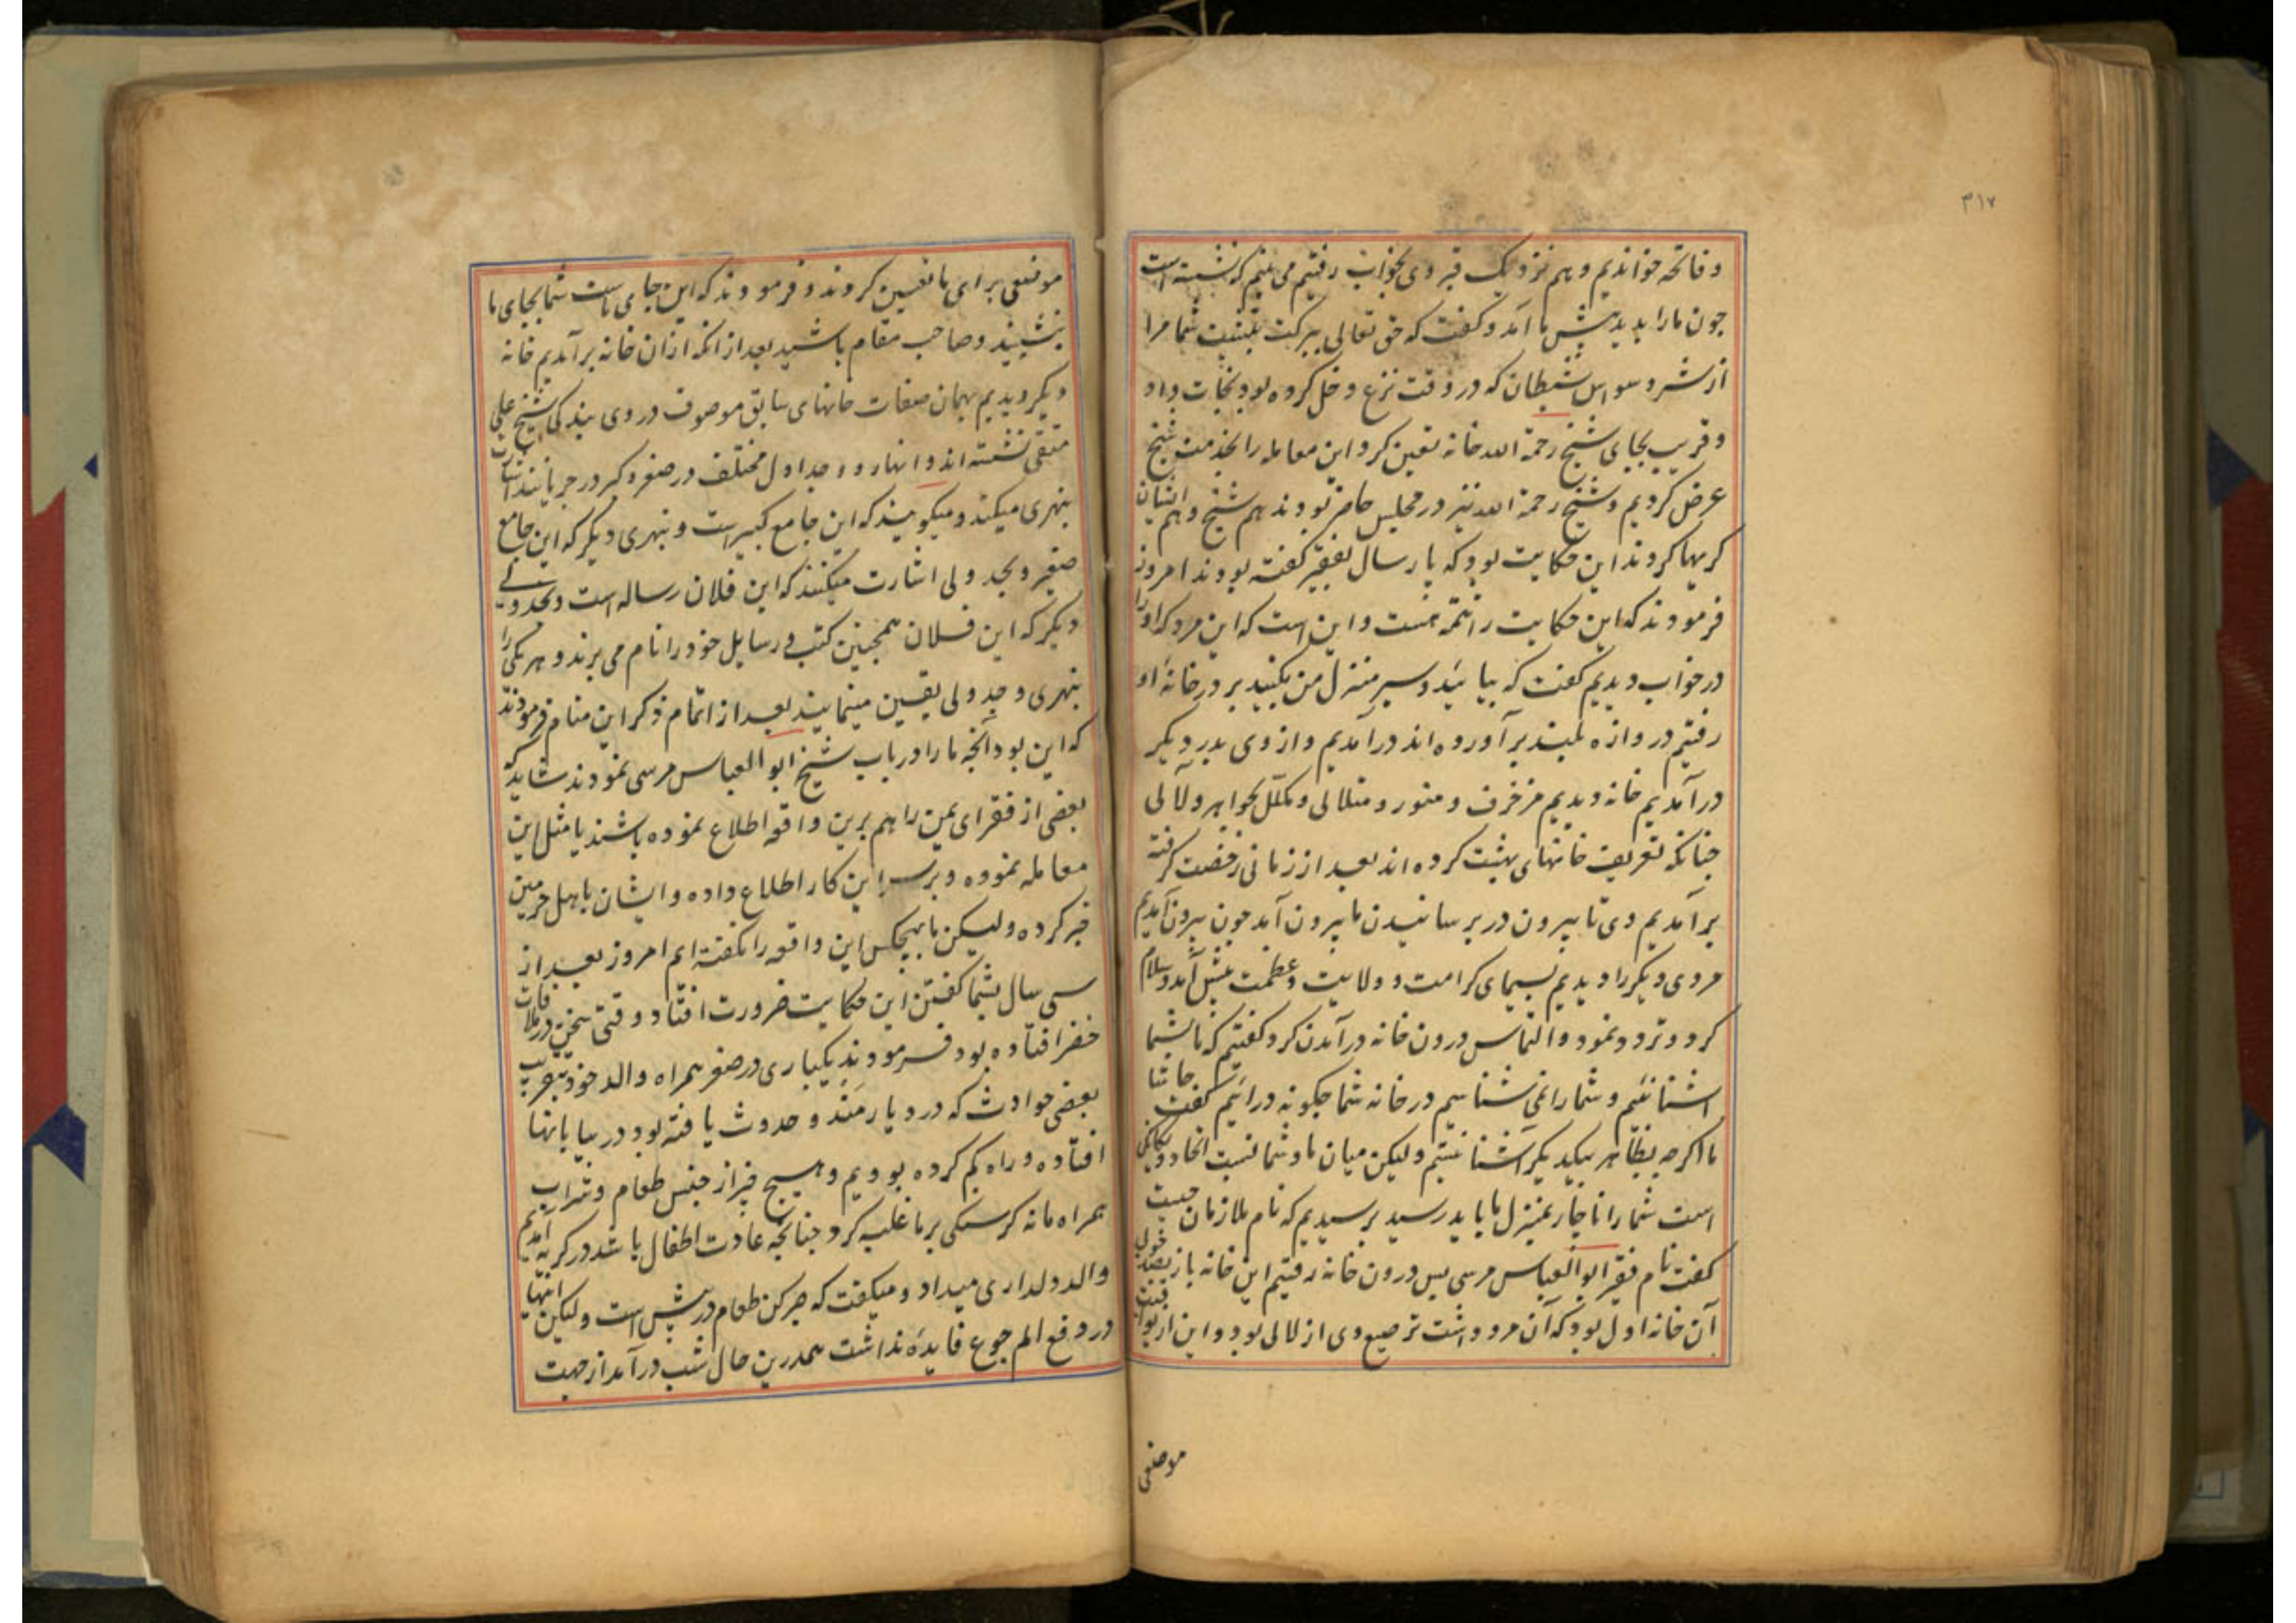 ۳۱۷
و فاتحه خواندیم و هم نزدیک قبر وی بخواب رفتیم می بینم که نشسته است
چون ما را بدید پیش ما آمد و گفت که حق تعالی ببرکت شما مرا
از شر وسواس شیطان که در وقت نزع دخل کرده بود نجات داد
و قریب بجای شیخ رحمة الله خانه تعین کرد این معامله را بخدمت شیخ
عرض کردیم و شیخ رحمة الله نیز در مجلس حاضر بودند هم شیخ و هم ایشان
کریها کردند این حکایت بود که پارسال بفقیر گفته بودند امروز
فرمودند که این حکایت را تتمه هست و این است که این مرد که او را
در خواب دیدیم گفت که بیائید و سیر منزل من بکنید بر در خانهٔ او
رفتیم دروازه بلند بر آورده اند در آمدیم و از وی بدر دیگر
در آمدیم خانه دیدیم مزخرف و منور و متلالی و مکلل بجواهر و لآلی
چنانکه تعریف خانهای بهشت کرده اند بعد از زمانی رخصت گرفته
بر آمدیم وی تا بیرون در برسانیدن ما بیرون آمد چون بیرون آمدیم
مردی دیگر را دیدیم بسیمای کرامت و ولایت و عظمت پیش آمد و سلام
کرد و تردد نمود و التماس درون خانه در آمدن کرد گفتیم که ما بشما
اشنا نئیم و شما را نمی شناسیم در خانه شما چکونه درائیم گفت حاشا
ما اگرچه بظاهر بیکدیگر آشنا نیستیم ولیکن میان ما و شما نسبت اتحاد و یکانگی
است شما را ناچار بمنزل ما باید رسید پرسیدیم که نام ملازمان چیست
گفت نام فقیر ابو العباس مرسی پس درون خانه رفتیم این خانه باز
آن خانه اول بود که آن مرد داشت ترصیع وی از لالی بود و این از یواقیت
موضعی
موضعی برای ما تعیین کردند و فرمودند که این جای ماست شما بجای ما
بنشینید و صاحب مقام باشید بعد از انکه ازان خانه بر آمدیم خانه
دیگر دیدیم بهمان صفات خانهای سابق موصوف در وی بندگی شیخ علی
متقی نشسته اند و انهار و جداول مختلف در صغر و کبر در جریانند اشارت
بنهری میکنند و میگویند که این جامع کبیر است و بنهری دیگر که این جامع
صغیر و بجدولی اشارت میکنند که این فلان رساله است و بجدولی
دیگر که این فلان همچنین کتب و رسایل خود را نام می برند و هر یکی را
بنهری و جدولی یقین مینمایند بعد از اتمام ذکر این منام فرمودند
که این بود آنچه ما را در باب شیخ ابو العباس مرسی نمودند شاید که
بعضی از فقرای یمن را هم برین واقعه اطلاع نموده باشند یا مثل این
معامله نموده و بر سر این کار اطلاع داده و ایشان باهل حرمین
خبر کرده ولیکن ما بهیچکس این واقعه را نگفته ایم امروز بعد از
سی سال بشما گفتن این حکایت ضرورت افتاد و وقتی سخن در ملاقات
خضر افتاده بود فرمودند یکباری در صغر همراه والد خود بتقریب
بعضی حوادث که در دیار مندو حدوث یافته بود در بیابانها
افتاده و راه کم کرده بودیم و هیچ چیز از جنس طعام و شراب
همراه ما نه کرسنکی بر ما غلبه کرد چنانچه عادت اطفال باشد در کریه آمدیم
والد دلداری میداد و میگفت که صبر کن طعام در پیش است ولیکن اینها
در دفع الم جوع فایدهٔ نداشت همدرین حال شب در آمد از جهت